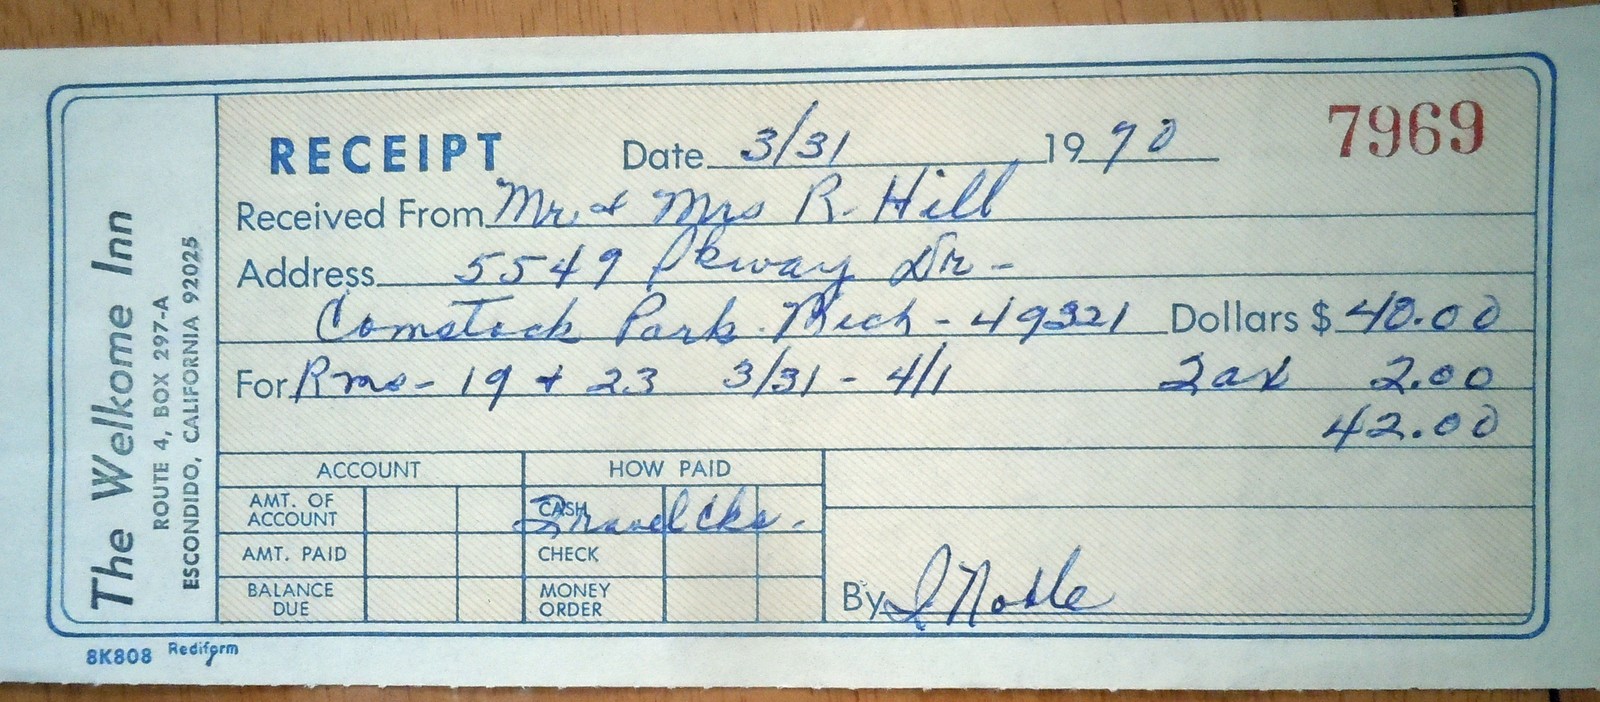 The Welkome Inn
ROUTE 4, BOX 297-A
ESCONDIDO, CALIFORNIA 92025
RECEIPT Date 3/31 1970 7969
Received From Mr. & Mrs R. Hill
Address 5549 Pkway Dr -
Comstock Park. Mich - 49321 Dollars $ 40.00
For Rms - 19 & 23 3/31 - 4/1 Tax 2.00
42.00
ACCOUNT HOW PAID
AMT. OF ACCOUNT CASH Travel cks.
AMT. PAID CHECK
BALANCE DUE MONEY ORDER
By I Noble
8K808 Rediform